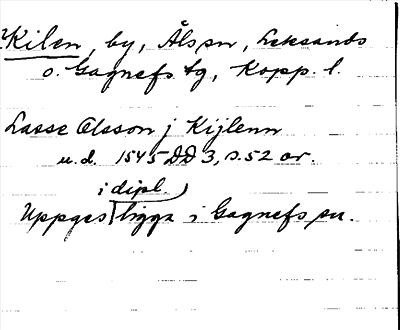 Kilen, by, Åls sn, Leksands
o. Gagnefs tg, Kopp. l.
Lasse Olsson j Kijlenn
u.d. 1545 DD 3, s. 52 or.
i dipl.
Uppges ligga i Gagnefs sn.